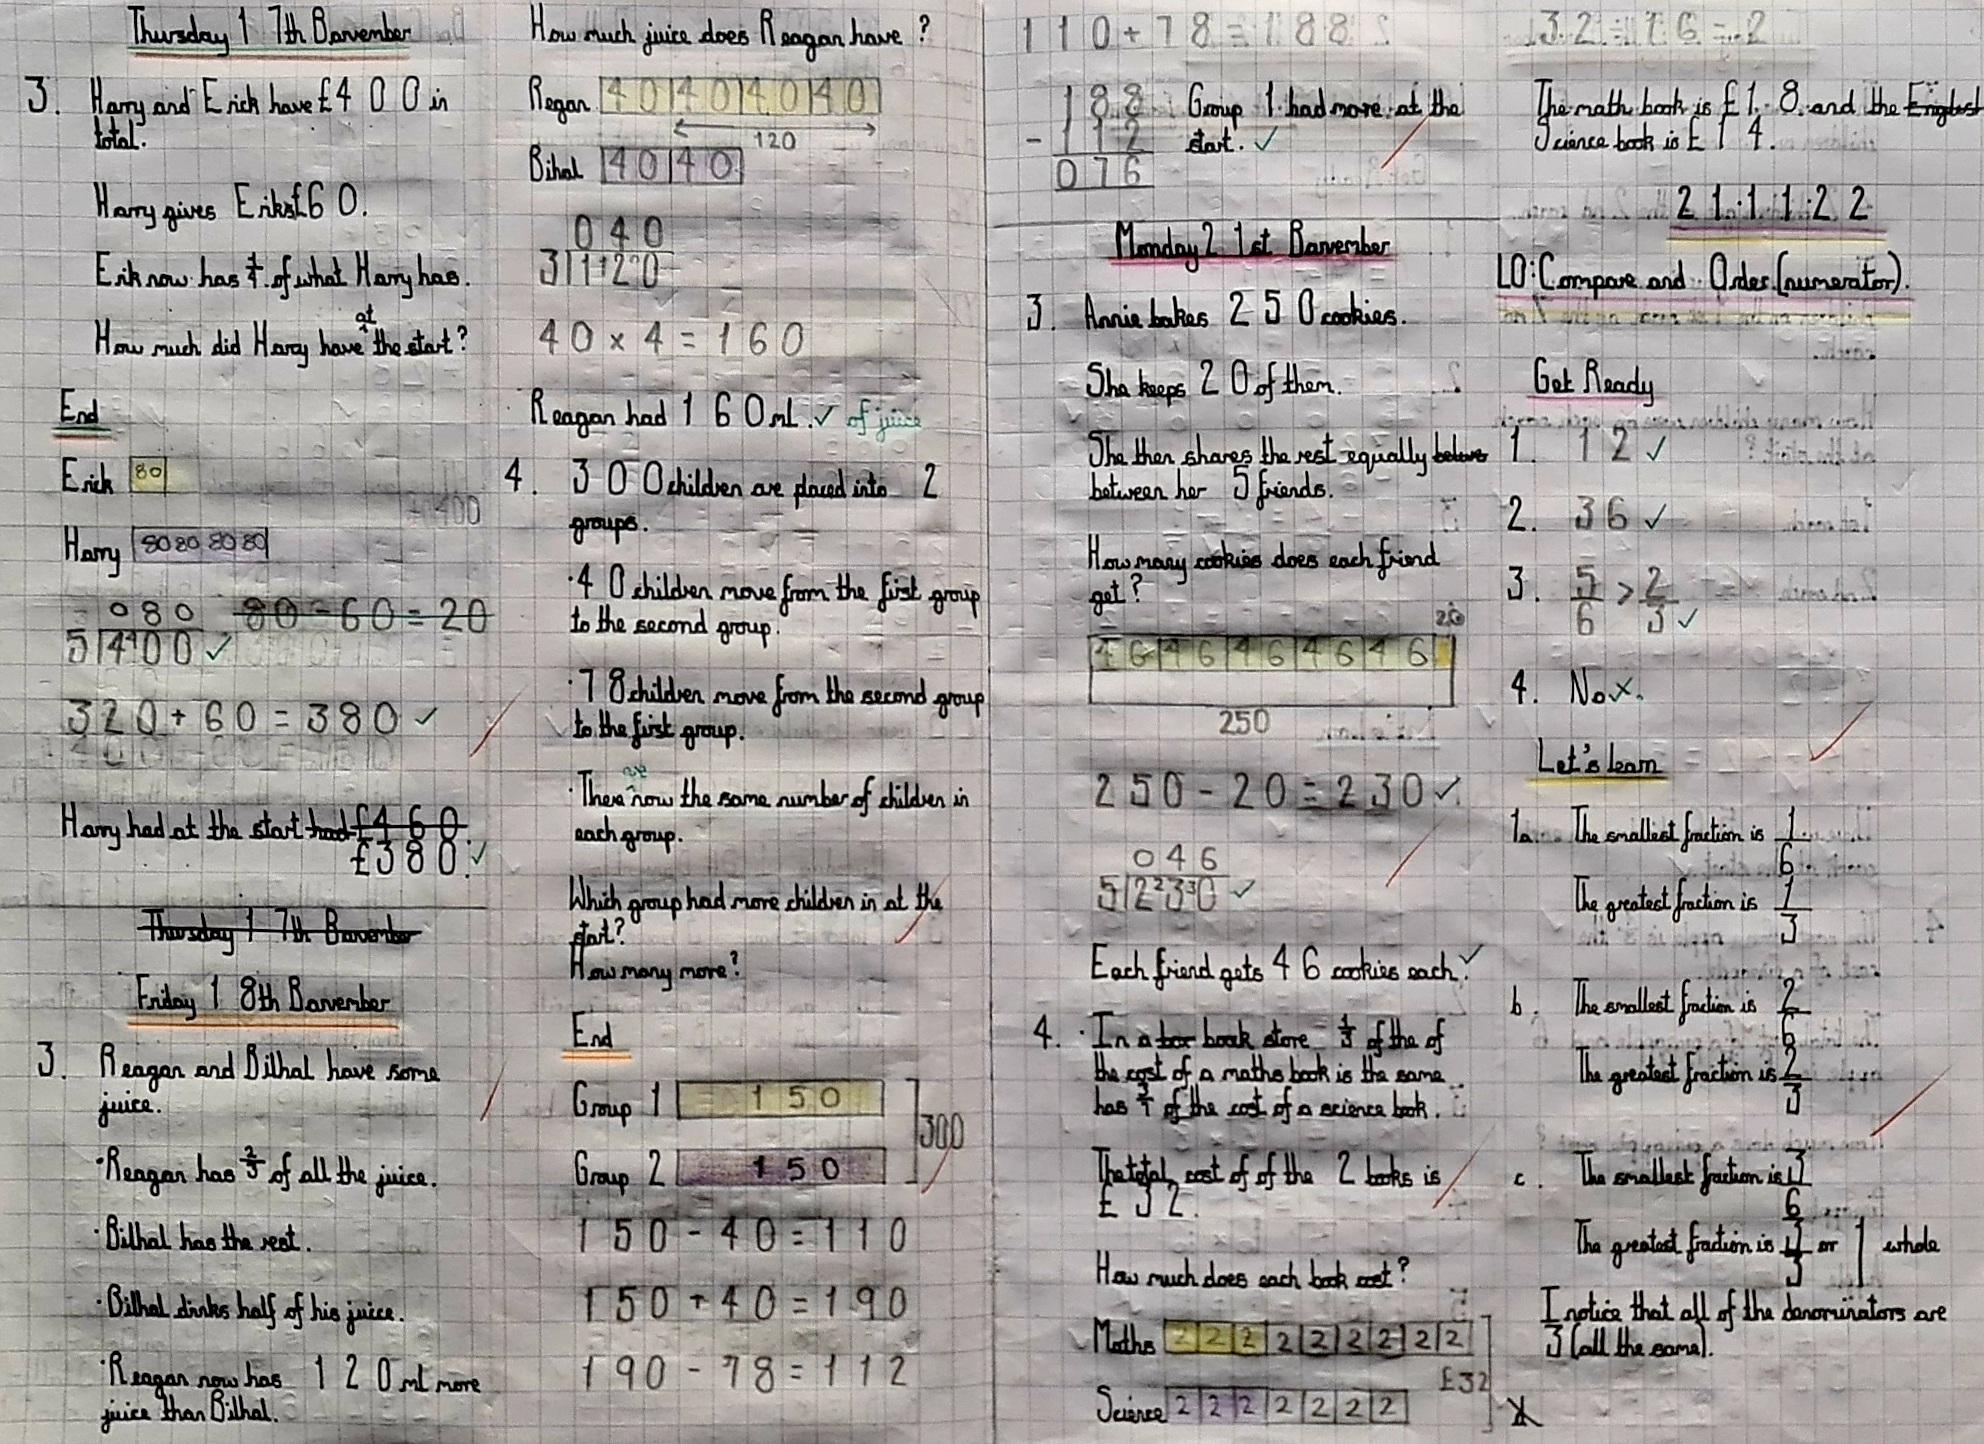 Thursday 17th Barvember
3. Harry and Erick have £400 in
total.
Harry gives Eriks £60.
Erik now has 1/4 of what Harry has.
at
How much did Harry have the start?
End
Erick 80
400
Harry 80 80 80 80
080 80 - 60 = 20
5 400 ✓
320 + 60 = 380 ✓
Harry had at the start had £460
£380. ✓
Thursday 17th Barvember
Friday 18th Barvember
3. Reagan and Bilhal have some
juice.
·Reagan has 2/3 of all the juice.
·Bilhal has the rest.
·Bilhal drinks half of his juice.
·Reagan now has 120 ml more
juice than Bilhal.
How much juice does Reagan have?
Regan 40 40 40 40
120
Bihal 40 40
040
3 120
40 × 4 = 160
Reagan had 160ml. ✓ of juice
4. 300 children are placed into 2
groups.
·40 children move from the first group
to the second group.
·78 children move from the second group
to the first group.
are
·There now the same number of children in
each group.
Which group had more children in at the
start?
How many more?
End
Group 1 150
300
Group 2 150
150 - 40 = 110
150 + 40 = 190
190 - 78 = 112
110 + 78 = 188
188 Group 1 had more at the
- 112 start. ✓
076
Monday 21st Barvember
3. Annie bakes 250 cookies.
She keeps 20 of them.
She then shares the rest equally
between her 5 friends.
How many cookies does each friend
get?
20
46 46 46 46 46
250
250 - 20 = 230 ✓
046
5 2 ²3 ³0 ✓
Each friend gets 46 cookies each. ✓
4. ·In a book store 1/3 of the of
the cost of a maths book is the same
has 3/7 of the cost of a science book.
The total cost of of the 2 books is
£32.
How much does each book cost?
Maths 2 2 2 2 2 2 2 2 2
£32
Science 2 2 2 2 2 2 2
32 ÷ 16 = 2
The math book is £18 and the
Science book is £14.
21.11.22
LO: Compare and Order (numerator).
Get Ready
1. 12 ✓
2. 36 ✓
3. 5/6 > 2/3 ✓
4. No x.
Let's learn
1a. The smallest fraction is 1/6
The greatest fraction is 1/3
b. The smallest fraction is 2/6
The greatest fraction is 2/3
c. The smallest fraction is 3/6
The greatest fraction is 3/3 or 1 whole
I notice that all of the denominators are
3 (all the same).